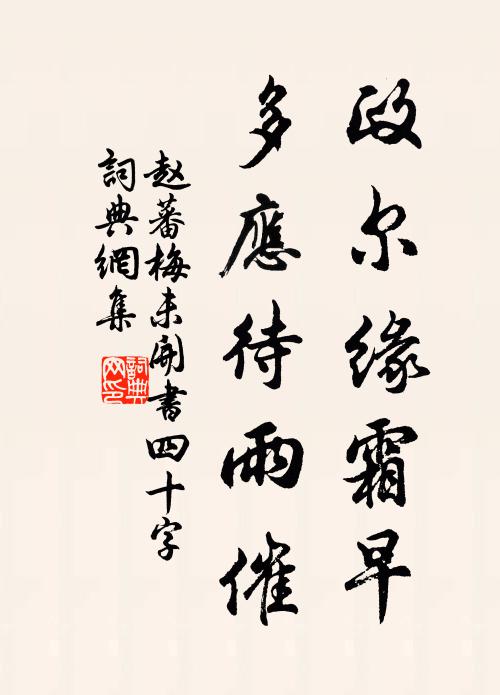 政尔缘霜早
多應待雨催
赵蕃梅未開書四十字
詞典網集
詞典
网印